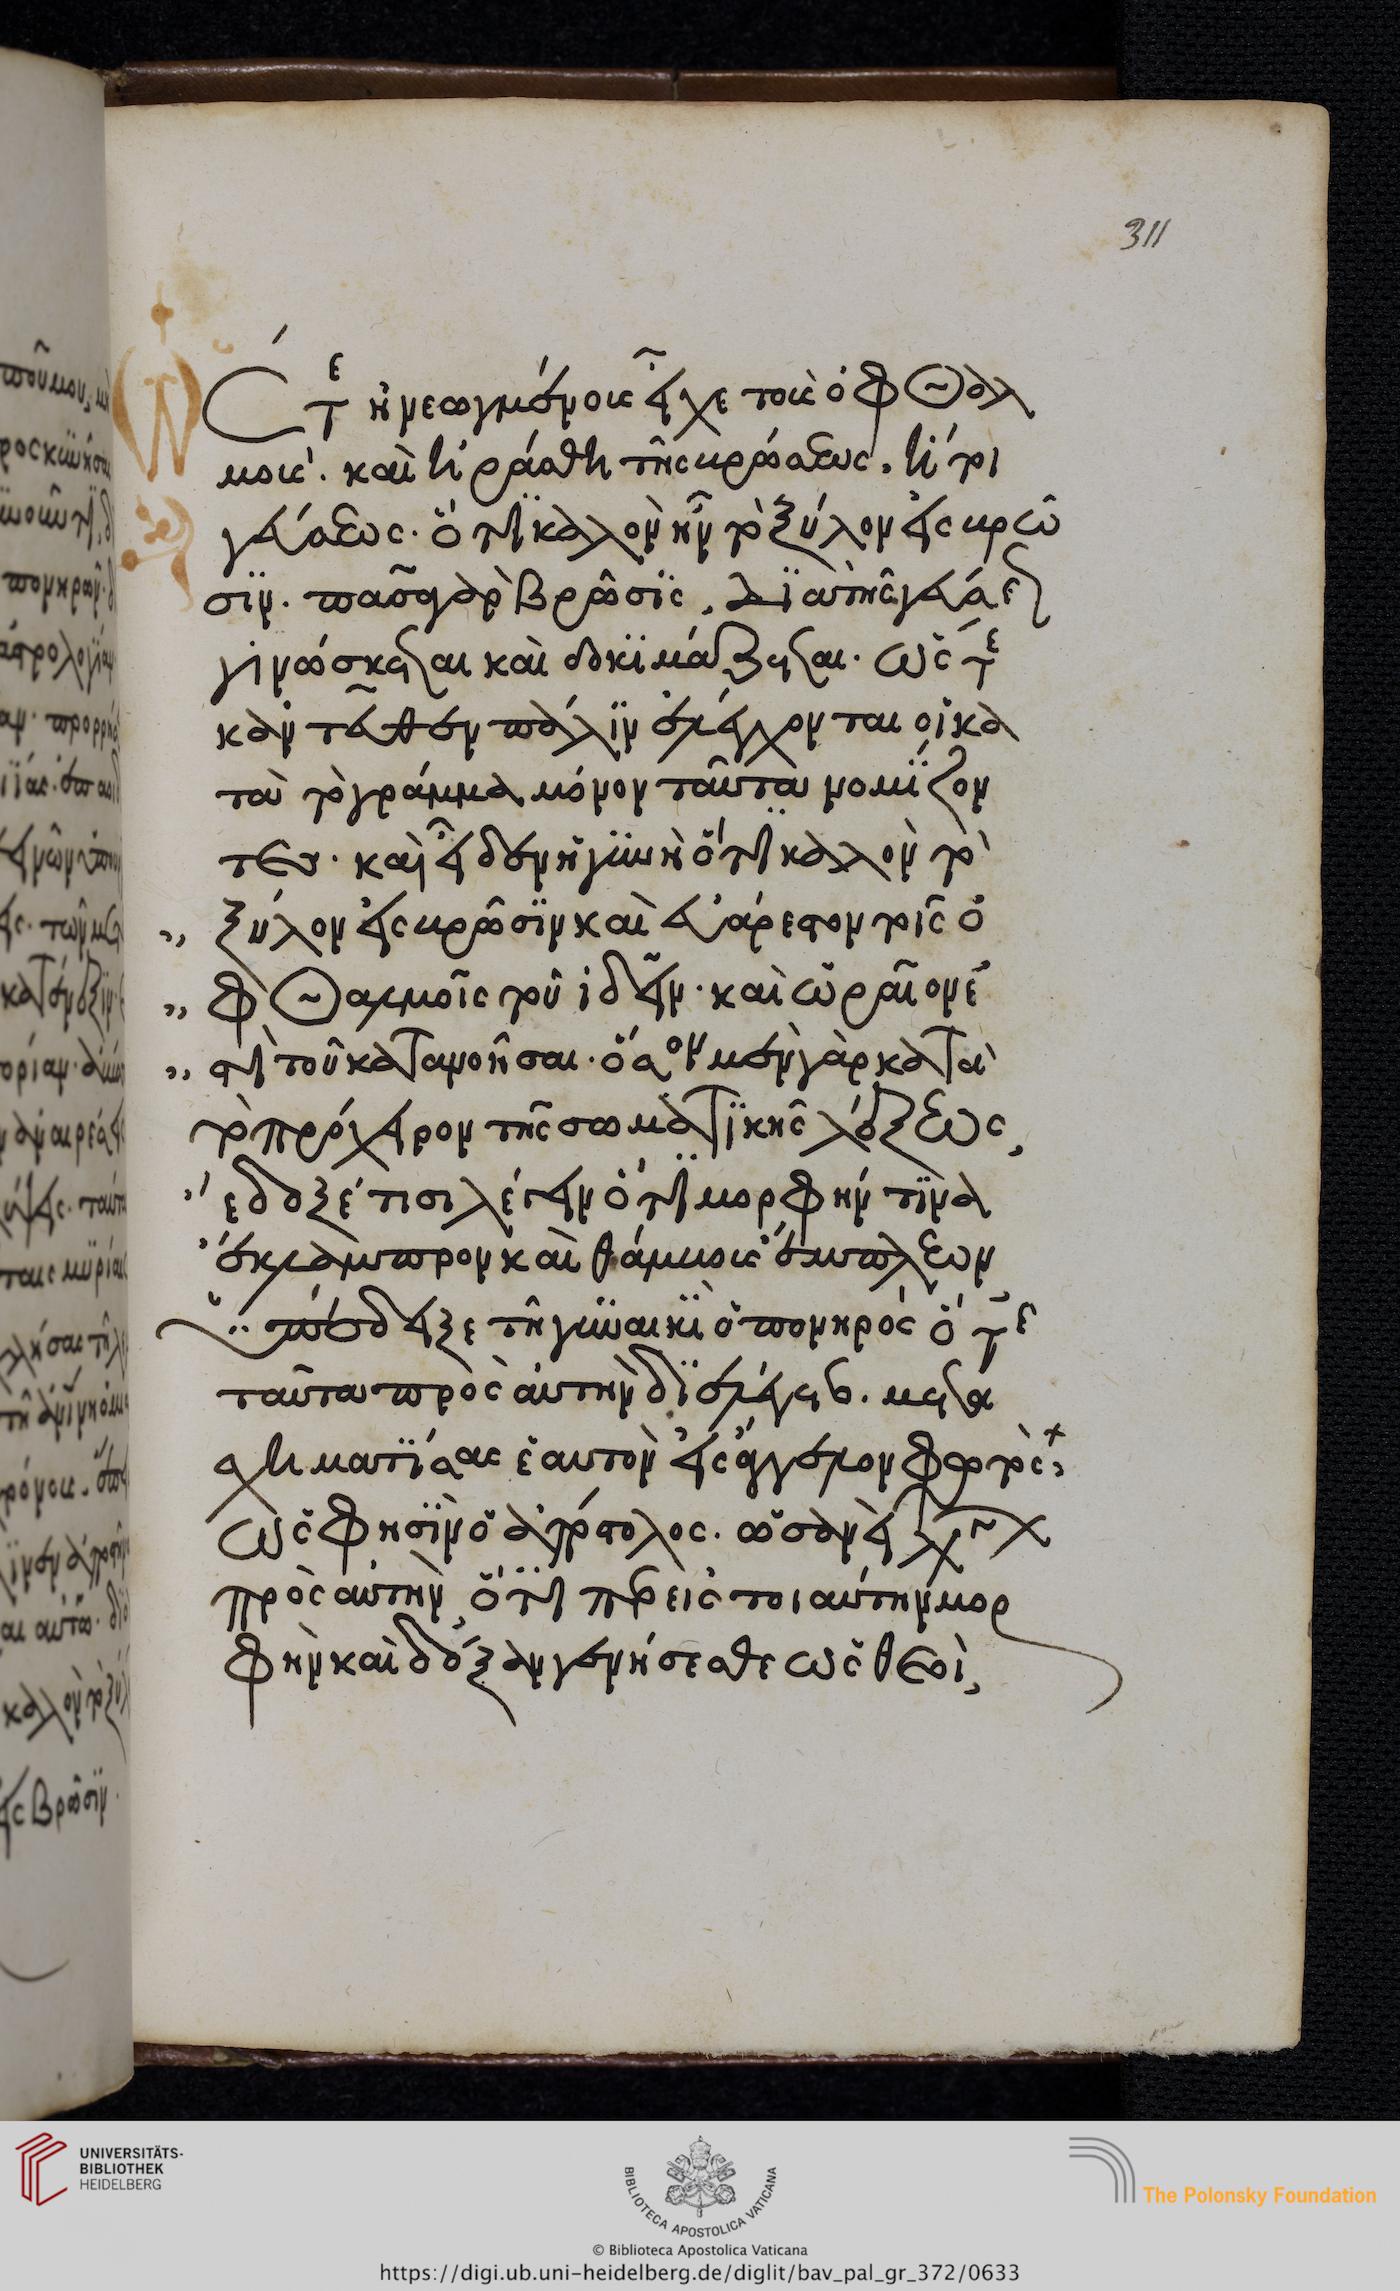 311
Ὥστε ἠνεωγμένους εἶχε τοὺς ὀφθαλ
μούς. καὶ ἠράσθη τῆς βρώσεως. ἤτοι
γεύσεως. ὅτι καλὸν ἦν τὸ ξύλον εἰς βρῶ
σϊν. πᾶσα γὰρ βρῶσϊς, διὰ τῆς γεύσεως
γινώσκεται καὶ δοκϊμάζεται. ὥστε
κἀντεῦθεν πάλϊν ἐλέγχονται οἱ κα
τὰ τὸ γράμμα μόνον ταῦτα νομΐζον
τες. καὶ εἶδεν ἡ γυνὴ ὅτι καλὸν τὸ
„ ξύλον εἰς βρῶσϊν καὶ εὐάρεστον τοῖς ὀ
„ φθαλμοῖς τοῦ ἰδεῖν. καὶ ὡραῖον ἐ
„ στὶ τοῦ κατανοῆσαι. ὅσον μὲν γὰρ κατὰ
τὸ πρόχειρον τῆς σωματϊκῆς λέξεως,
ἔδοξέ τισι λέγειν ὅτι μορφήν τϊνα
ἔκλαμπρον καὶ θάμβους ἔμπλεων
ὑπέδειξε τῇ γυναικὶ ὁ πονηρὸς ὅτε
ταῦτα πρὸς αὐτὴν διελέγετο. μετα
σχηματΐσας ἑαυτὸν εἰς ἄγγελον φωτὸς,
ὥς φησϊν ὁ ἀπόστολος. ὡσανεὶ
πρὸς αὐτὴν, ὅτι περ εἰς τοιαύτην μορ
φὴν καὶ δόξαν γενήσεσθε ὡς θεοὶ,
UNIVERSITÄTS-
BIBLIOTHEK
HEIDELBERG
BIBLIOTECA APOSTOLICA VATICANA
The Polonsky Foundation
© Biblioteca Apostolica Vaticana
https://digi.ub.uni-heidelberg.de/diglit/bav_pal_gr_372/0633